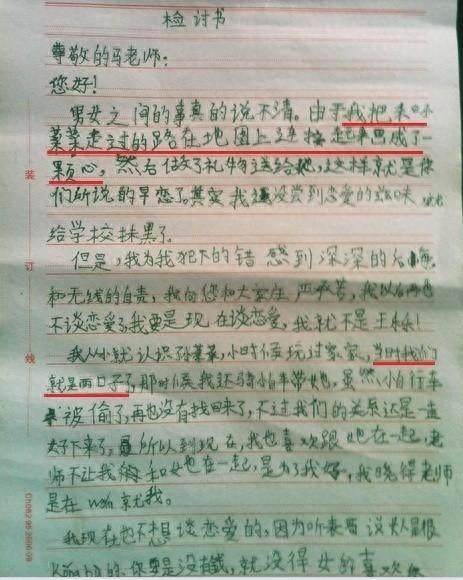 检讨书
尊敬的马老师：
您好！
男女之间的事真的说不清。由于我把和孙
某某走过的路在地图上连接起来画成了一
颗心，然后做了礼物送给她，这样就是你
们所说的早恋了。其实我还没尝到恋爱的滋味，就
给学校抹黑了。
但是，我为我犯下的错感到深深的后悔
和无线的自责，我向您和大家庄严承诺，我以后再也
不谈恋爱了，我要是现在谈恋爱，我就不是王
我从小就认识孙某某，小时候玩过家家，当时我们
就是两口子了，那时候我还骑车带她，虽然小自行车
被偷了，再也没有找回来了，不过我们的关系还是一直
好下来了，所以到现在，我也喜欢跟她在一起，老
师不让我和她在一起，是为了我好，我晓得老师
是在wan救我。
我现在也不想谈恋爱的，因为听表哥说女人是很
的，你要是没有钱，就没得女的喜欢你
装
订
线